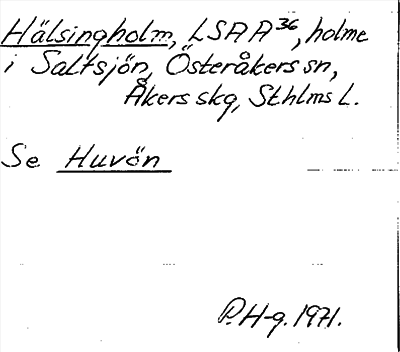 Hälsingholm, LSA A36, holme
i Saltsjön, Österåkers sn,
Åkers skg, Sthlms L.
Se Huvön
P.H-g. 1971.